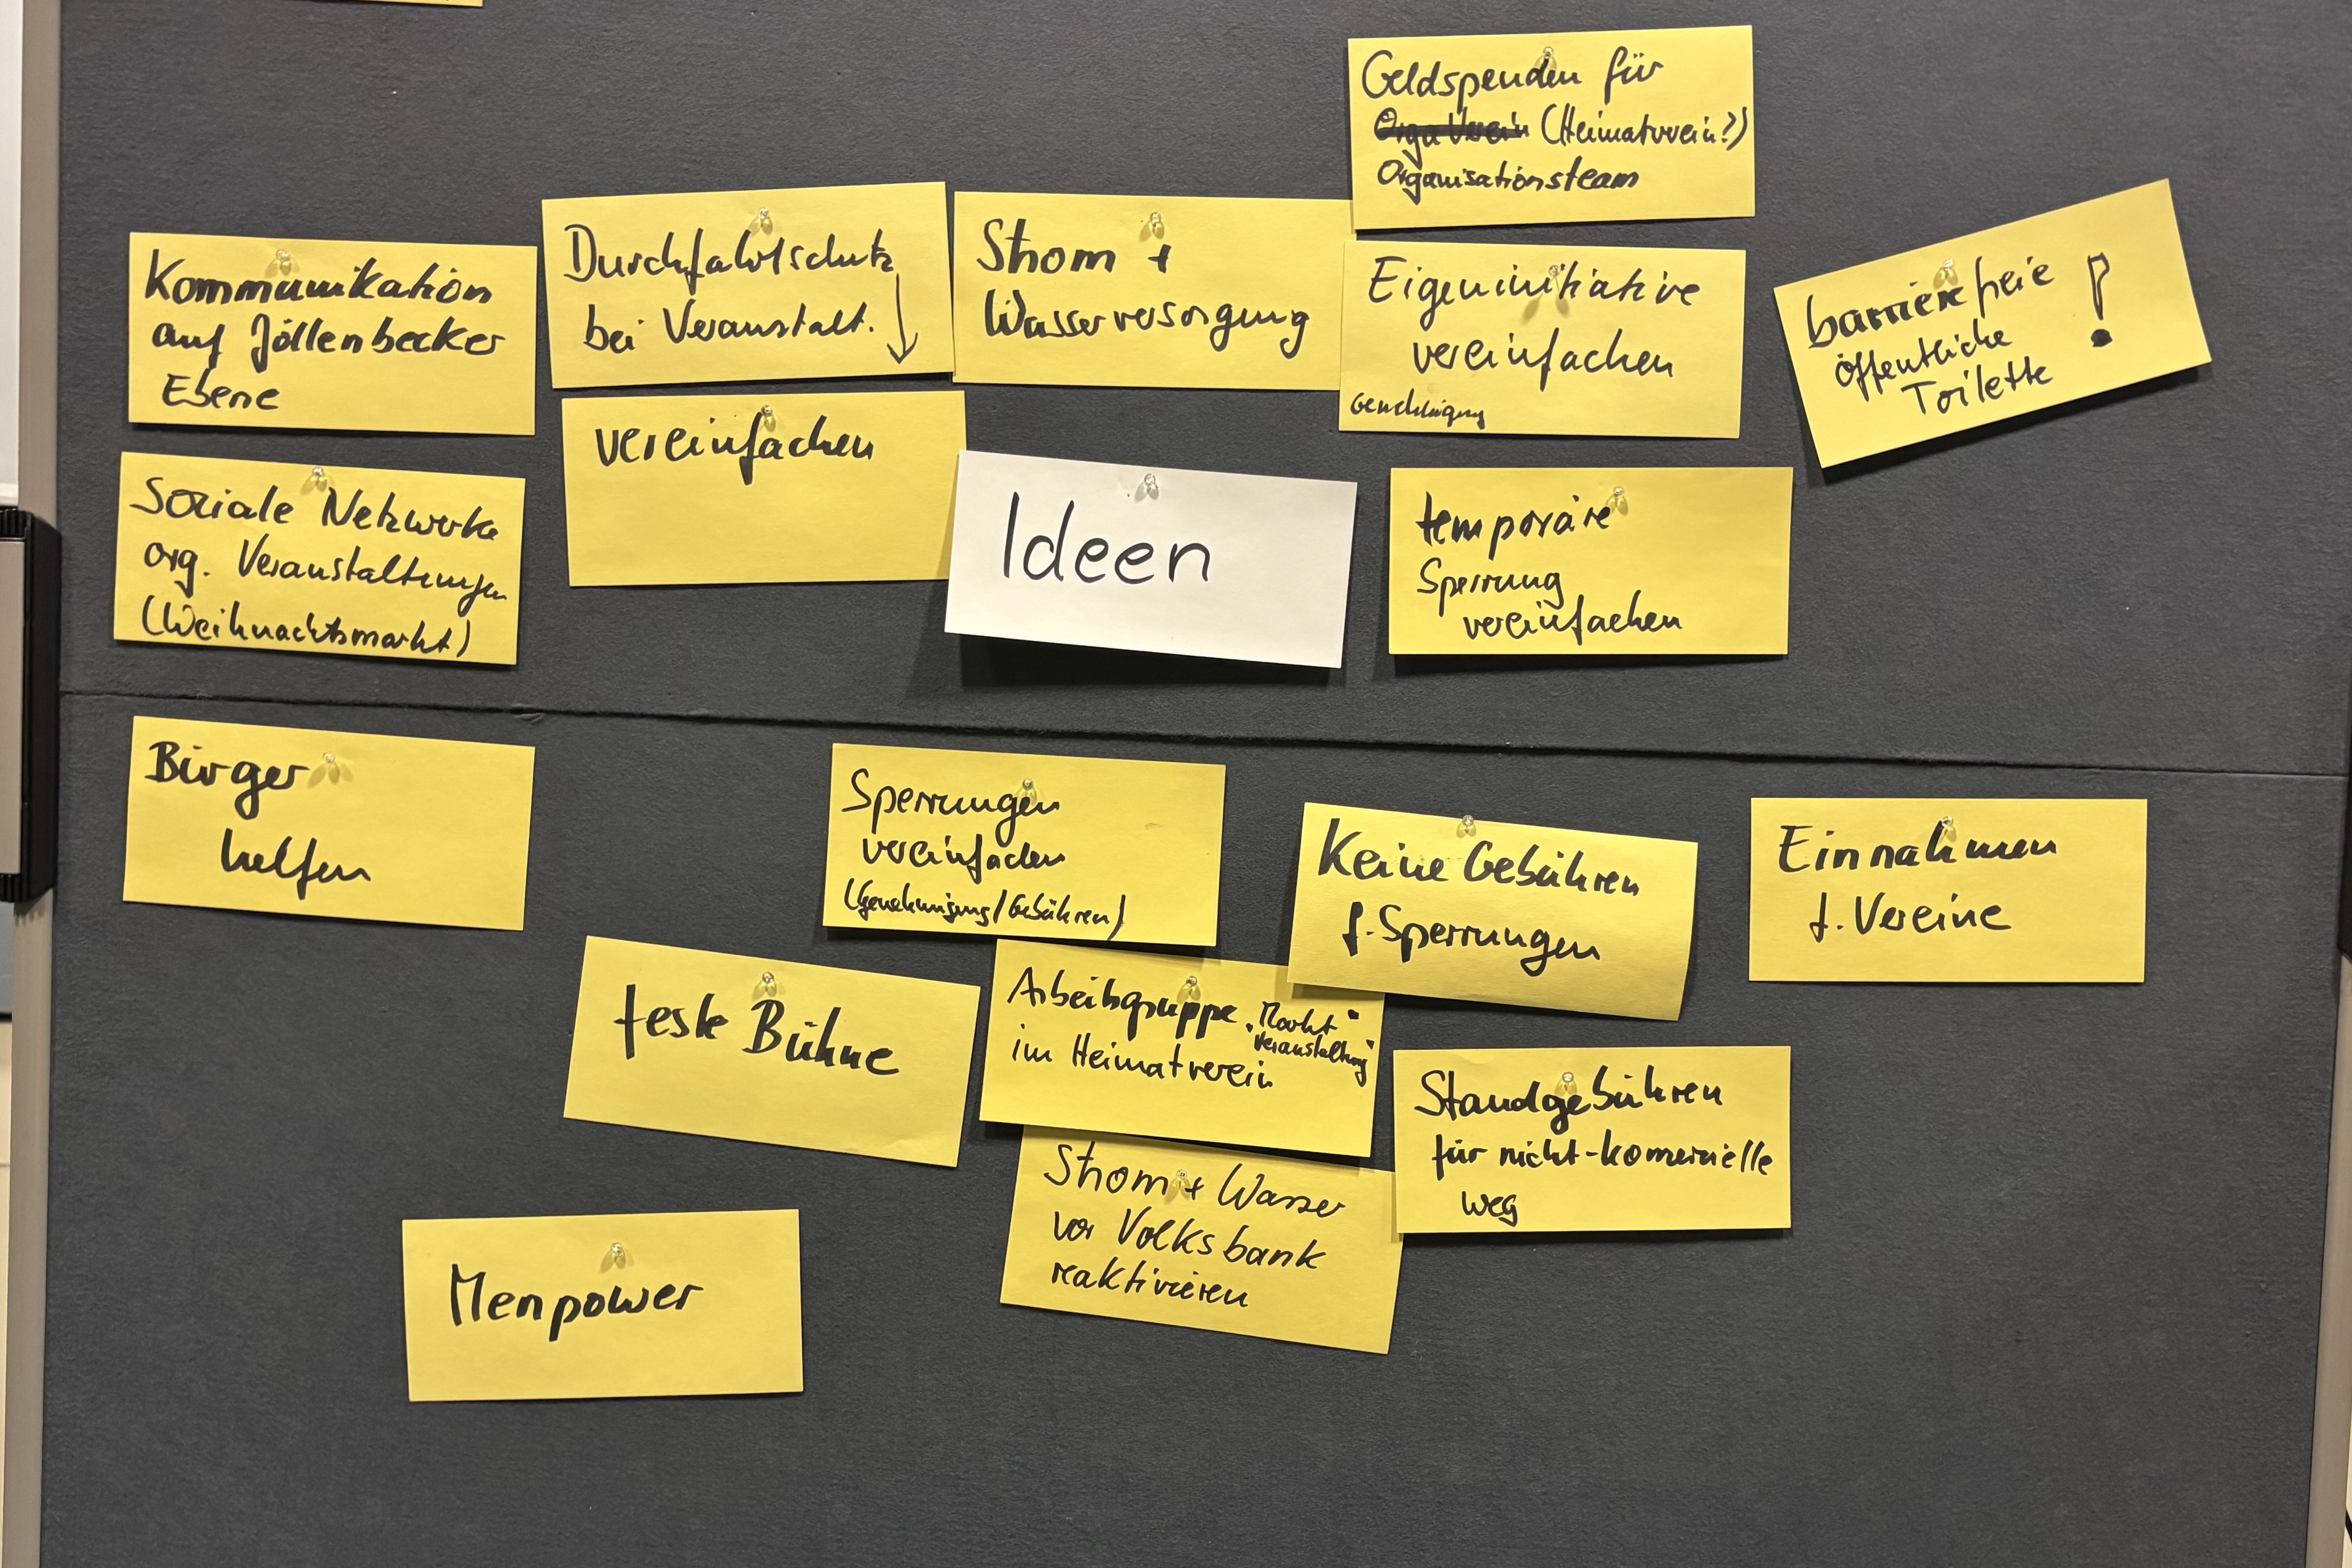 Geldspenden für
Orga Verein (Heimatverein?)
Organisationsteam
Kommunikation
auf Jöllenbecker
Ebene
Durchfahrtschutz
bei Veranstalt. ↓
vereinfachen
Strom +
Wasserversorgung
Eigeninitiative
vereinfachen
Genehmigung
barrierefreie
öffentliche
Toilette !
Soziale Netzwerke
org. Veranstaltungen
(Weihnachtsmarkt)
Ideen
temporäre
Sperrung
vereinfachen
Bürger
helfen
Sperrungen
vereinfachen
(Genehmigung/Gebühren)
Keine Gebühren
f. Sperrungen
Einnahmen
f. Vereine
feste Bühne
Arbeitsgruppe "Markt"
Veranstaltung"
im Heimatverein
Standgebühren
für nicht-komerzielle
weg
Strom + Wasser
vor Volksbank
reaktivieren
Menpower